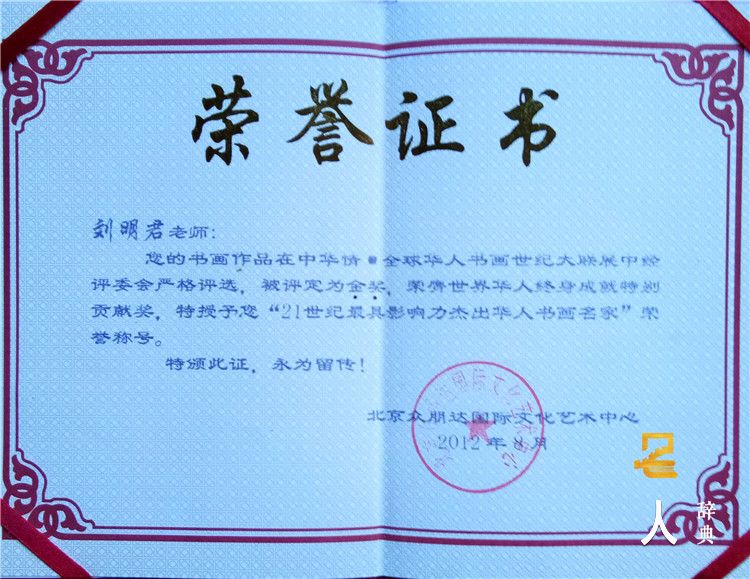 荣誉证书
刘明君老师：
您的书画作品在中华情·全球华人书画世纪大联展中经
评委会严格评选，被评定为金奖，荣膺世界华人终身成就特别
贡献奖，特授予您“21世纪最具影响力杰出华人书画名家”荣
誉称号。
特颁此证，永为留传！
北京众朋达国际文化艺术中心
2012年8月
人
辞典